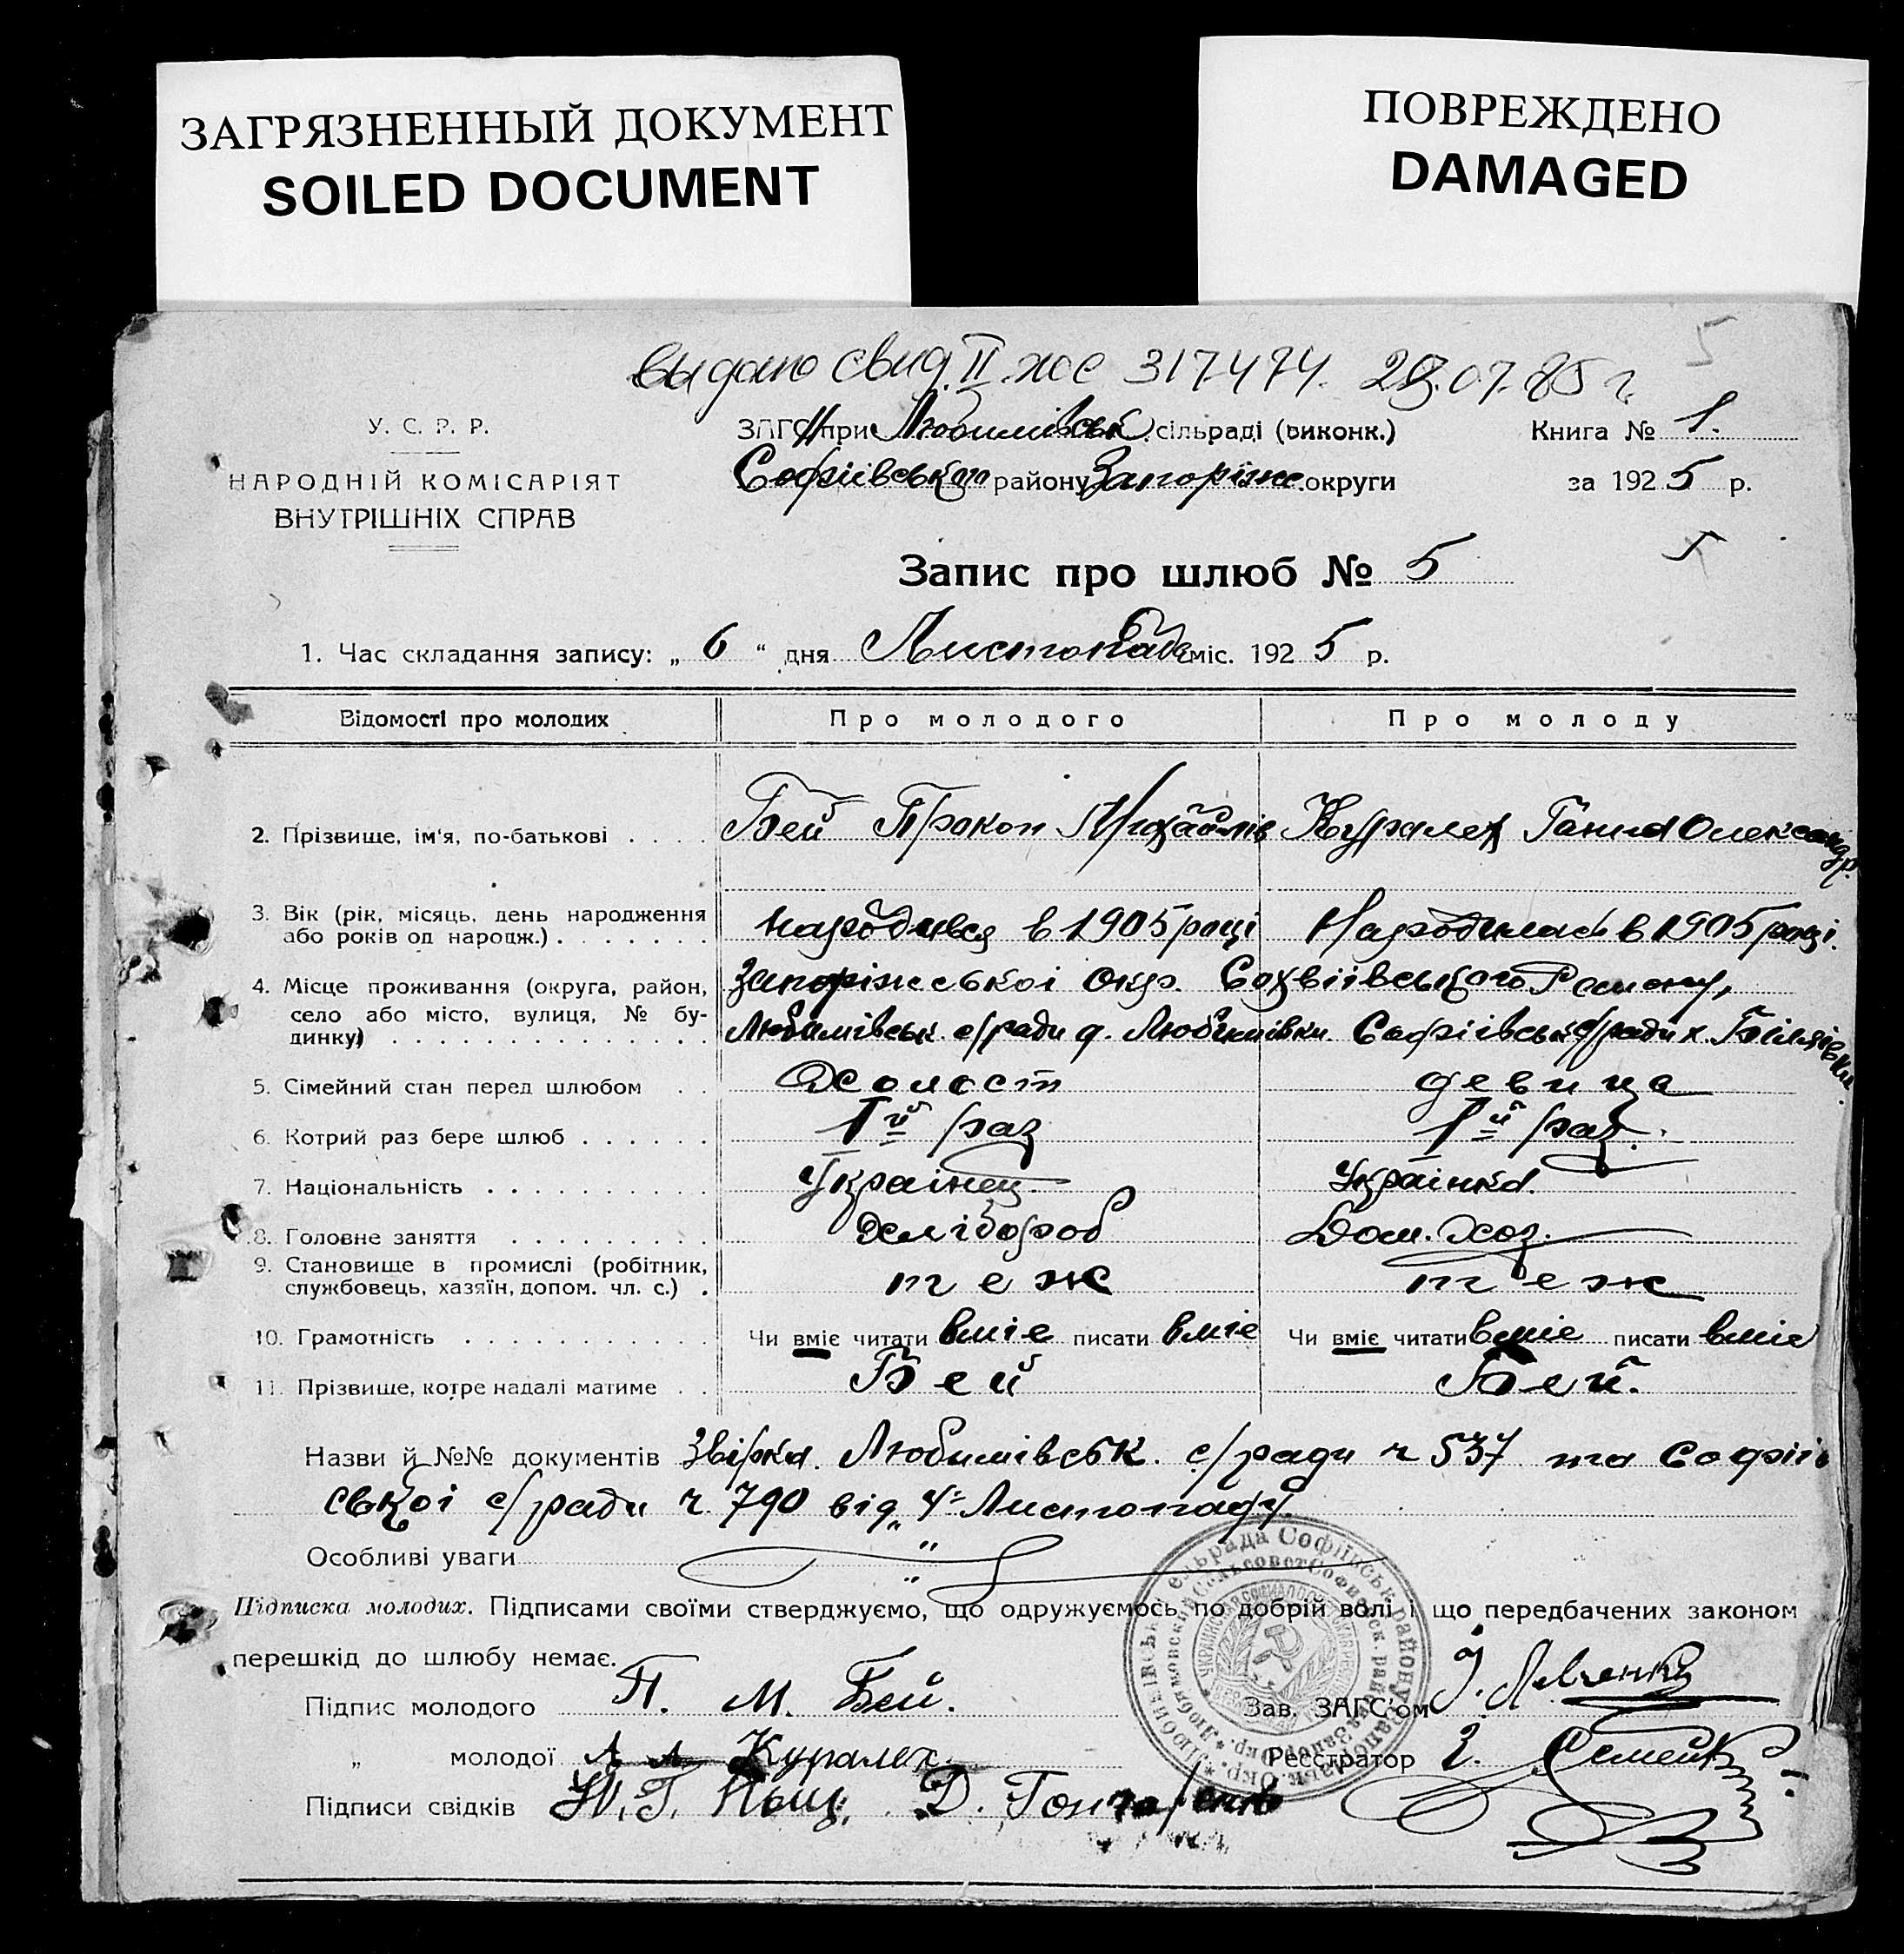 ЗАГРЯЗНЕННЫЙ ДОКУМЕНТ
SOILED DOCUMENT
ПОВРЕЖДЕНО
DAMAGED
5
выдано свид. II жс 317474. 29.07.85 г.
У. С. Р. Р.
НАРОДНІЙ КОМІСАРІЯТ
ВНУТРІШНІХ СПРАВ
ЗАГС при Любимівськ. сільраді (виконк.)
Софіївського району Запоріж. округи
Книга № 1.
за 1925 р.
Запис про шлюб № 5
1. Час складання запису: „ 6 “ дня Листопада міс. 1925 р.
Відомості про молодих Про молодого Про молоду
2. Прізвище, ім'я, по-батькові . . . . Бей Прокоп Михайлів Куралех Ганна Олександр.
3. Вік (рік, місяць, день народження
або років од народж.) . . . . . . . народився в 1905 році Народилась в 1905 році.
4. Місце проживання (округа, район, Запоріжської Окр. Сохвіївського Району,
село або місто, вулиця, № бу-
динку) . . . . . . . . . . . . . Любимівськ. с/ради д. Любимівки Софіївськ с/ради х. Біляївки
5. Сімейний стан перед шлюбом . . Холост девица
6. Котрий раз бере шлюб . . . . . . 1й раз 1й раз.
7. Національність . . . . . . . . . Українец. Українка.
8. Головне заняття . . . . . . . . . Хлібороб Дом. Хоз.
9. Становище в промислі (робітник,
службовець, хазяїн, допом. чл. с.) . теж теж
10. Грамотність . . . . . . . . . . . Чи вміє читати вміє писати вміє Чи вміє читати вміє писати вміє
11. Прізвище, котре надалі матиме . . Бей Бей.
Назви й №№ документів Звірка Любимівськ. с/ради ч 537 та Софіїв
ської с/ради ч. 790 від „4“ Листопаду.
Особливі уваги „
„
Підписка молодих. Підписами своїми стверджуємо, що одружуємось по добрій волі і що передбачених законом
перешкід до шлюбу немає.
Підпис молодого П. М. Бей.
Зав. ЗАГС'ом
„ молодої Куралех
Реєстратор
Підписи свідків Д. Гончаренко